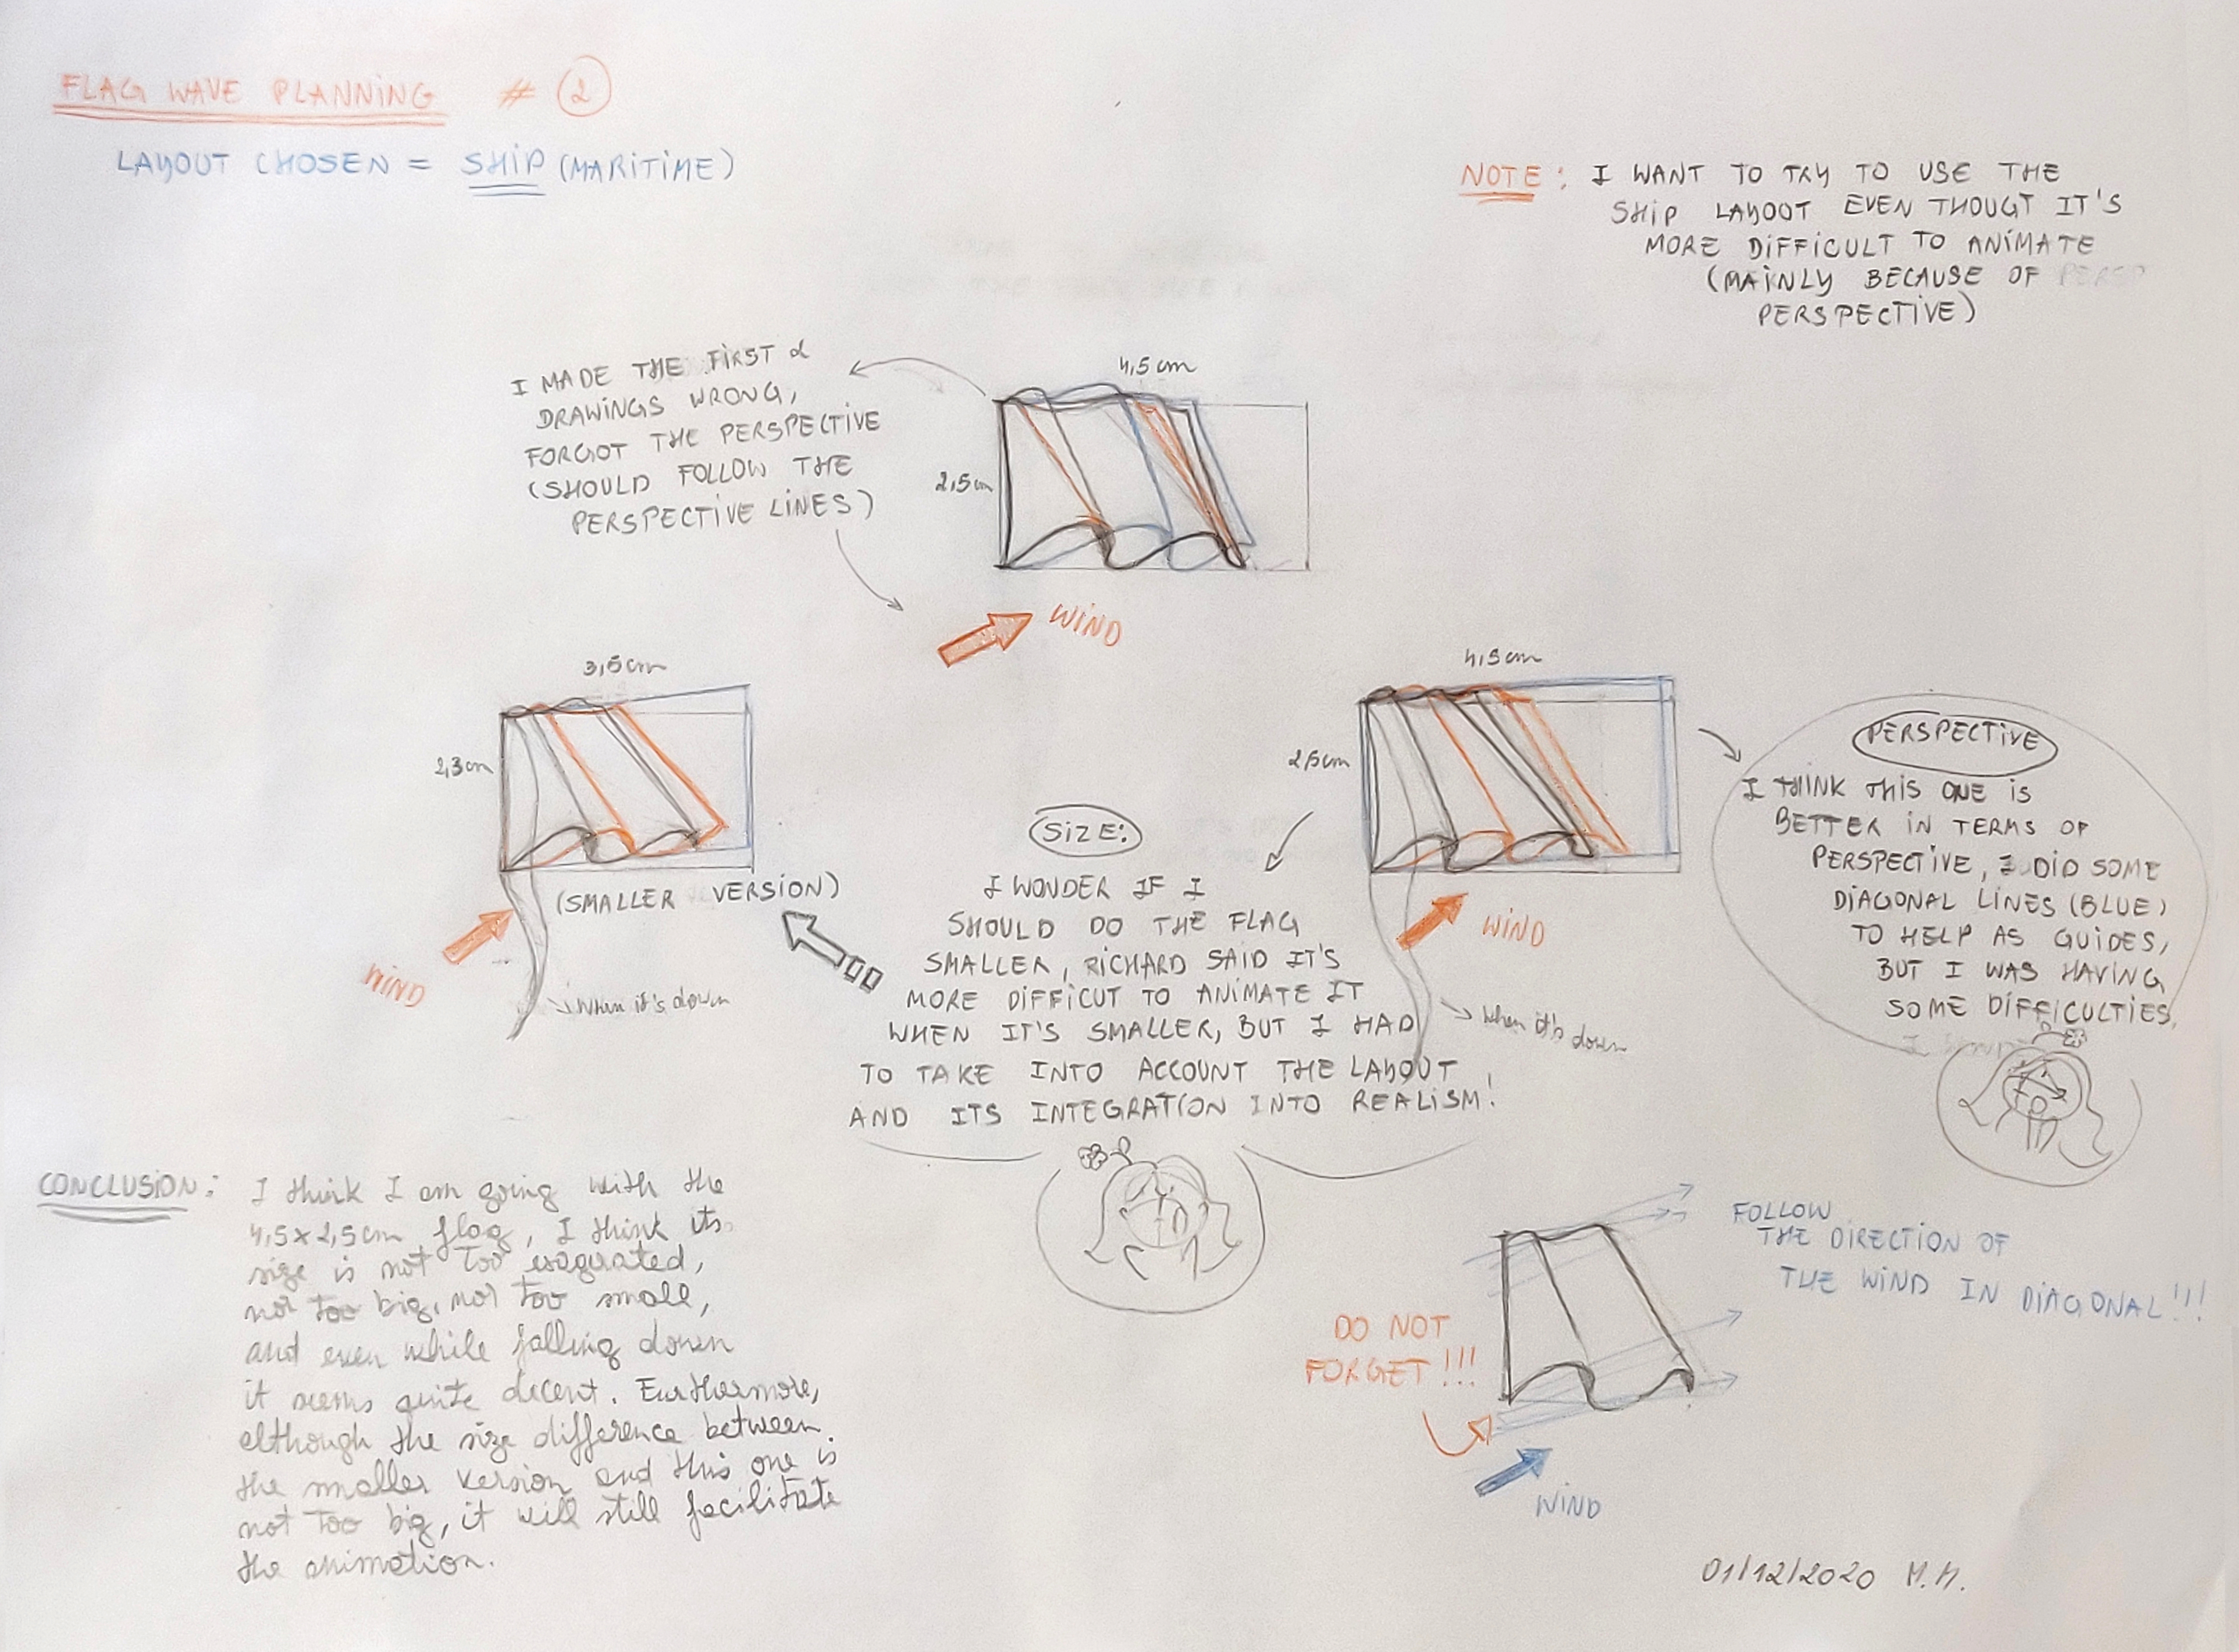 FLAG WAVE PLANNING # 2
LAYOUT CHOSEN = SHIP (MARITIME)
NOTE: I WANT TO TRY TO USE THE
SHIP LAYOUT EVEN THOUGT IT'S
MORE DIFFICULT TO ANIMATE
(MAINLY BECAUSE OF PERSP
PERSPECTIVE)
I MADE THE FIRST 2
DRAWINGS WRONG,
FORGOT THE PERSPECTIVE
(SHOULD FOLLOW THE
PERSPECTIVE LINES)
4,5cm
2,5cm
WIND
3,5cm
2,3cm
(SMALLER VERSION)
WIND
When it's down
4,5cm
2,5cm
WIND
When it's down
SIZE:
I WONDER IF I
SHOULD DO THE FLAG
SMALLER, RICHARD SAID IT'S
MORE DIFFICUT TO ANIMATE IT
WHEN IT'S SMALLER, BUT I HAD
TO TAKE INTO ACCOUNT THE LAYOUT
AND ITS INTEGRATION INTO REALISM!
PERSPECTIVE
I THINK THIS ONE IS
BETTER IN TERMS OF
PERSPECTIVE, I DID SOME
DIAGONAL LINES (BLUE)
TO HELP AS GUIDES,
BUT I WAS HAVING
SOME DIFFICULTIES.
CONCLUSION: I think I am going with the
4,5x2,5cm flag, I think its
size is not too exagerated,
not too big, not too small,
and even while falling down
it seems quite decent. Furthermore,
although the size difference between
the smaller version and this one is
not too big, it will still facilitate
the animation.
FOLLOW
THE DIRECTION OF
THE WIND IN DIAGONAL!!!
DO NOT
FORGET!!!
WIND
01/12/2020 M.M.